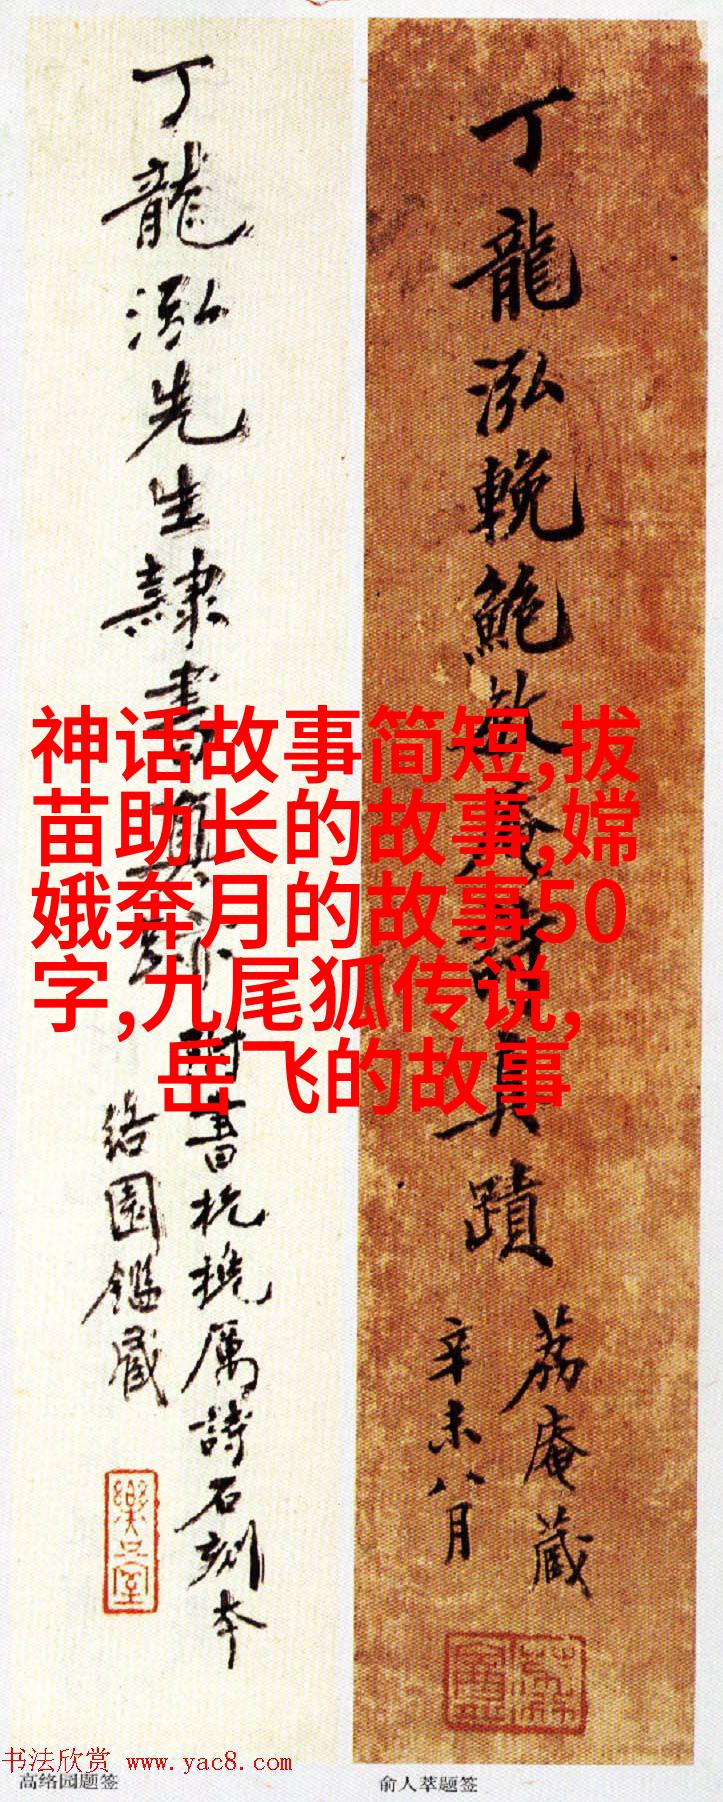 丁龍泓輓鮑敬義詩真蹟
荔庵藏
辛未八月
丁龍泓先生隸書真跡
附書杭
厲詩石刻本
絡園鑑藏
神话故事简短,拔
苗助长的故事,嫦
娥奔月的故事50
字,九尾狐传说,
岳飞的故事
书法欣赏 www.yac8.com
高络园题签
俞人萃题签